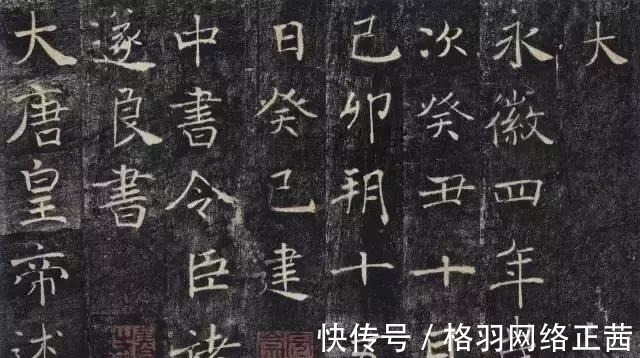 大
永徽四年
次癸丑十
己卯朔十
日癸巳建
中書令臣褚
遂良書
大唐皇帝述
快传号 / 格羽网络正茜